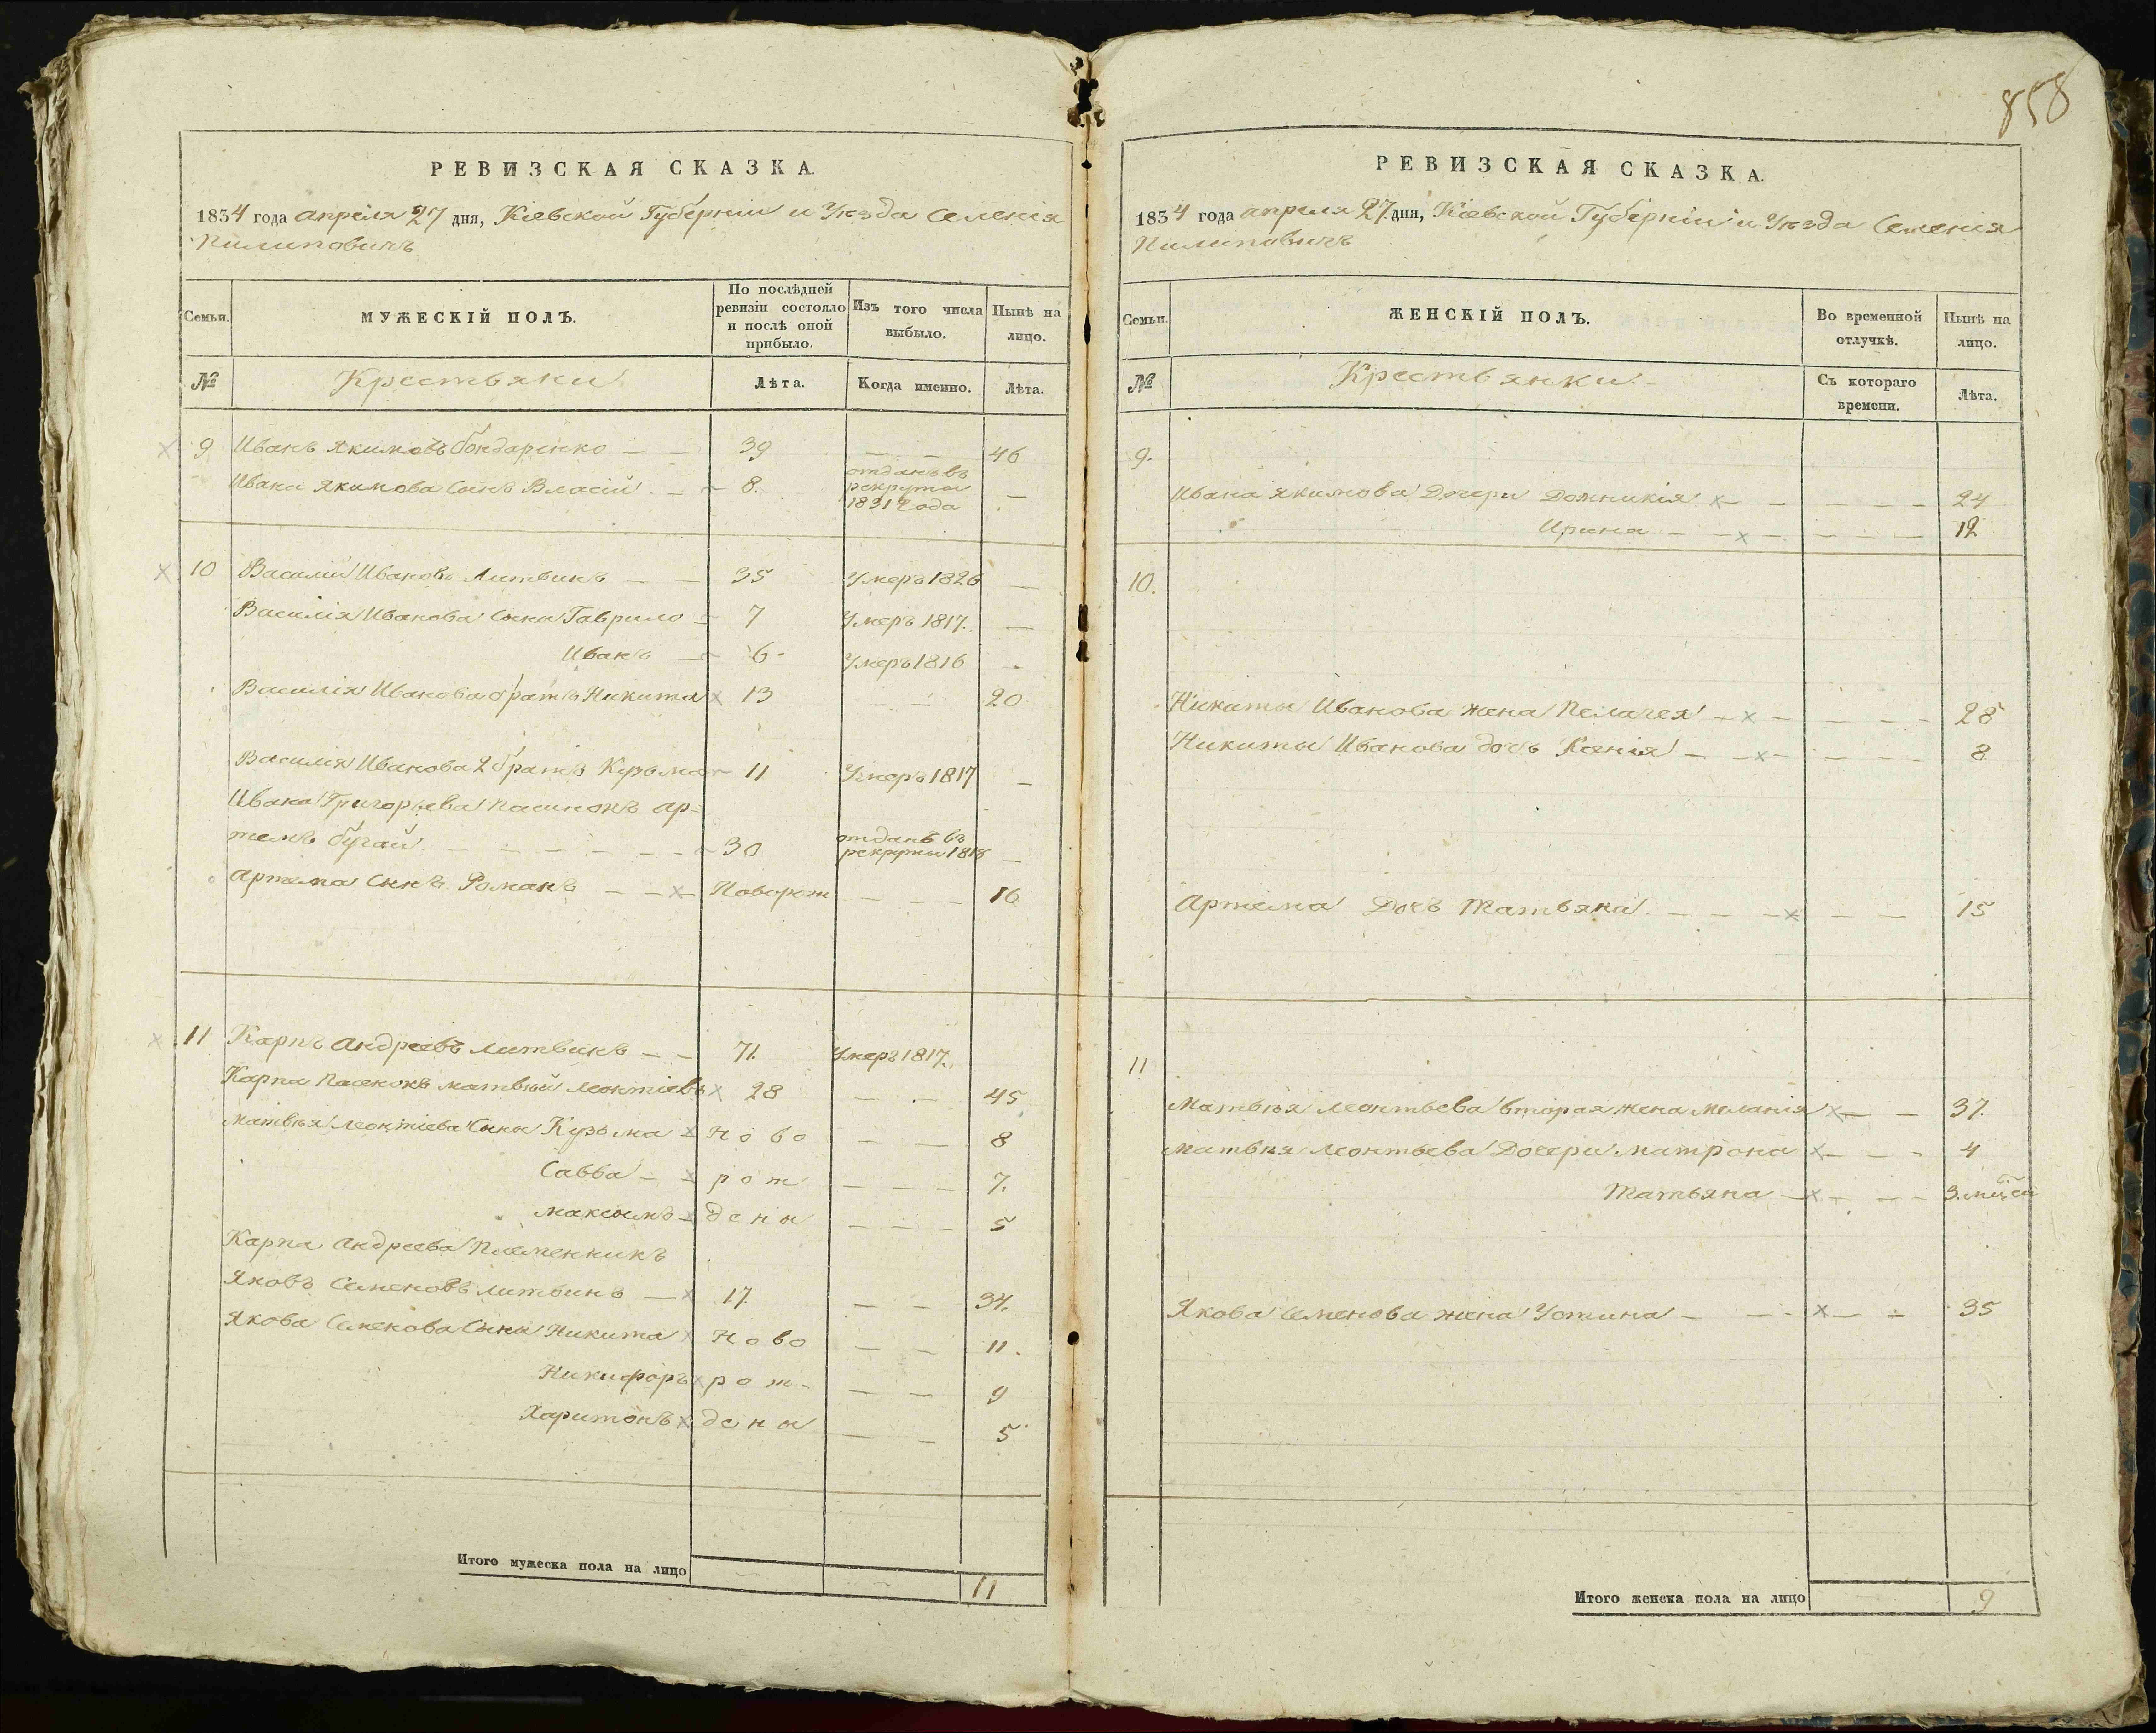 858
РЕВИЗСКАЯ СКАЗКА.
1834 года апреля 27 дня, Кіевской Губерніи и Уѣзда Селенія
Пилиповичъ
Семьи.
МУЖЕСКІЙ ПОЛЪ.
По послѣдней ревизіи состояло и послѣ оной прибыло.
Изъ того числа выбыло.
Нынѣ на лицо.
№
Крестьяни
Лѣта.
Когда именно.
Лѣта.
9 Иванъ Якимовъ бондаренко — — 39 — — 46
Ивана Якимова Сынъ Власій — 8. отданъ въ рекруты 1831 года —
10 Василій Ивановъ Литвинъ — — 35 Умеръ 1826 —
Василія Иванова Сыны Гаврило — 7 Умеръ 1817. —
Иванъ — 6 Умеръ 1816 -
Василія Иванова братъ Никита х 13 — — 20
Василія Иванова 2 братъ Кузьма — 11 Умеръ 1817 —
Ивана Григорьева Пасинокъ ар=
темъ бугай — — — — — — 30 отданъ въ рекруты 1818 —
Артема Сынъ Романъ — — х Новорож — — — 16
11 Карпъ Андреевъ Литвинъ — — 71. Умеръ 1817.
Карпа Пасенокъ матвѣй Леонтіевъ х 28 — — 45
матвѣя Леонтіева Сыны Кузьма х Ново — — 8
Савва — х рож — — — 7.
максимъ х дены — — — 5
Карпа Андреева Племенникъ
Яковъ Семеновъ Литвинъ — х 17. — — 34.
Якова Семенова Сыны Никита х Ново — — 11.
Никифоръ х рож — — 9
Харитонъ х дены — — 5
Итого мужеска пола на лицо 11
РЕВИЗСКАЯ СКАЗКА.
1834 года апреля 27 дня, Кіевской Губерніи и Уѣзда Селенія
Пилиповичъ
Семьи.
ЖЕНСКІЙ ПОЛЪ.
Во временной отлучкѣ.
Нынѣ на лицо.
№
Крестьянки
Съ котораго времени.
Лѣта.
9.
Ивана Якимова Дочери Домникія х — — — — — 24
Ирина — — х — — — — 12
10.
Никиты Иванова жена Пелагея — х — — — — 28
Никиты Иванова дочь Ксенія — — х — — — — 8
Артема Дочь Татьяна — — — х — — 15
11
Матвѣя Леонтьева вторая жена Меланія х — — 37.
Матвѣя Леонтьева Дочери Матрона х — — - 4
Татьяна — х — — — 3. мцей
Якова Семенова жена Устина — — - х — — 35
Итого женска пола на лицо 9